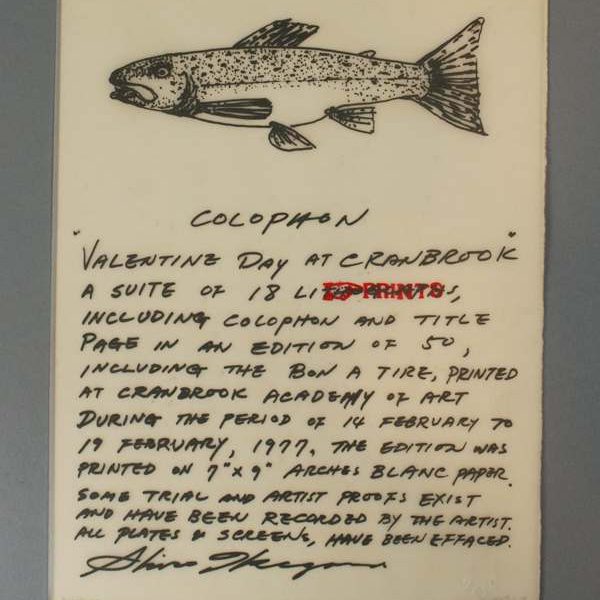 COLOPHON
"VALENTINE DAY AT CRANBROOK"
A SUITE OF 18 PRINTS,
INCLUDING COLOPHON AND TITLE
PAGE IN AN EDITION OF 50,
INCLUDING THE BON A TIRE, PRINTED
AT CRANBROOK ACADEMY OF ART
DURING THE PERIOD OF 14 FEBRUARY TO
19 FEBRUARY, 1977. THE EDITION WAS
PRINTED ON 7"x9" ARCHES BLANC PAPER.
SOME TRIAL AND ARTIST PROOFS EXIST
AND HAVE BEEN RECORDED BY THE ARTIST.
ALL PLATES & SCREENS, HAVE BEEN EFFACED.